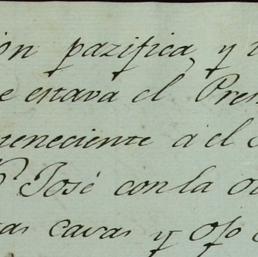 ión pazifica, y
e estava el Pres
teneciente á el
José con la o
as cavas y ofo